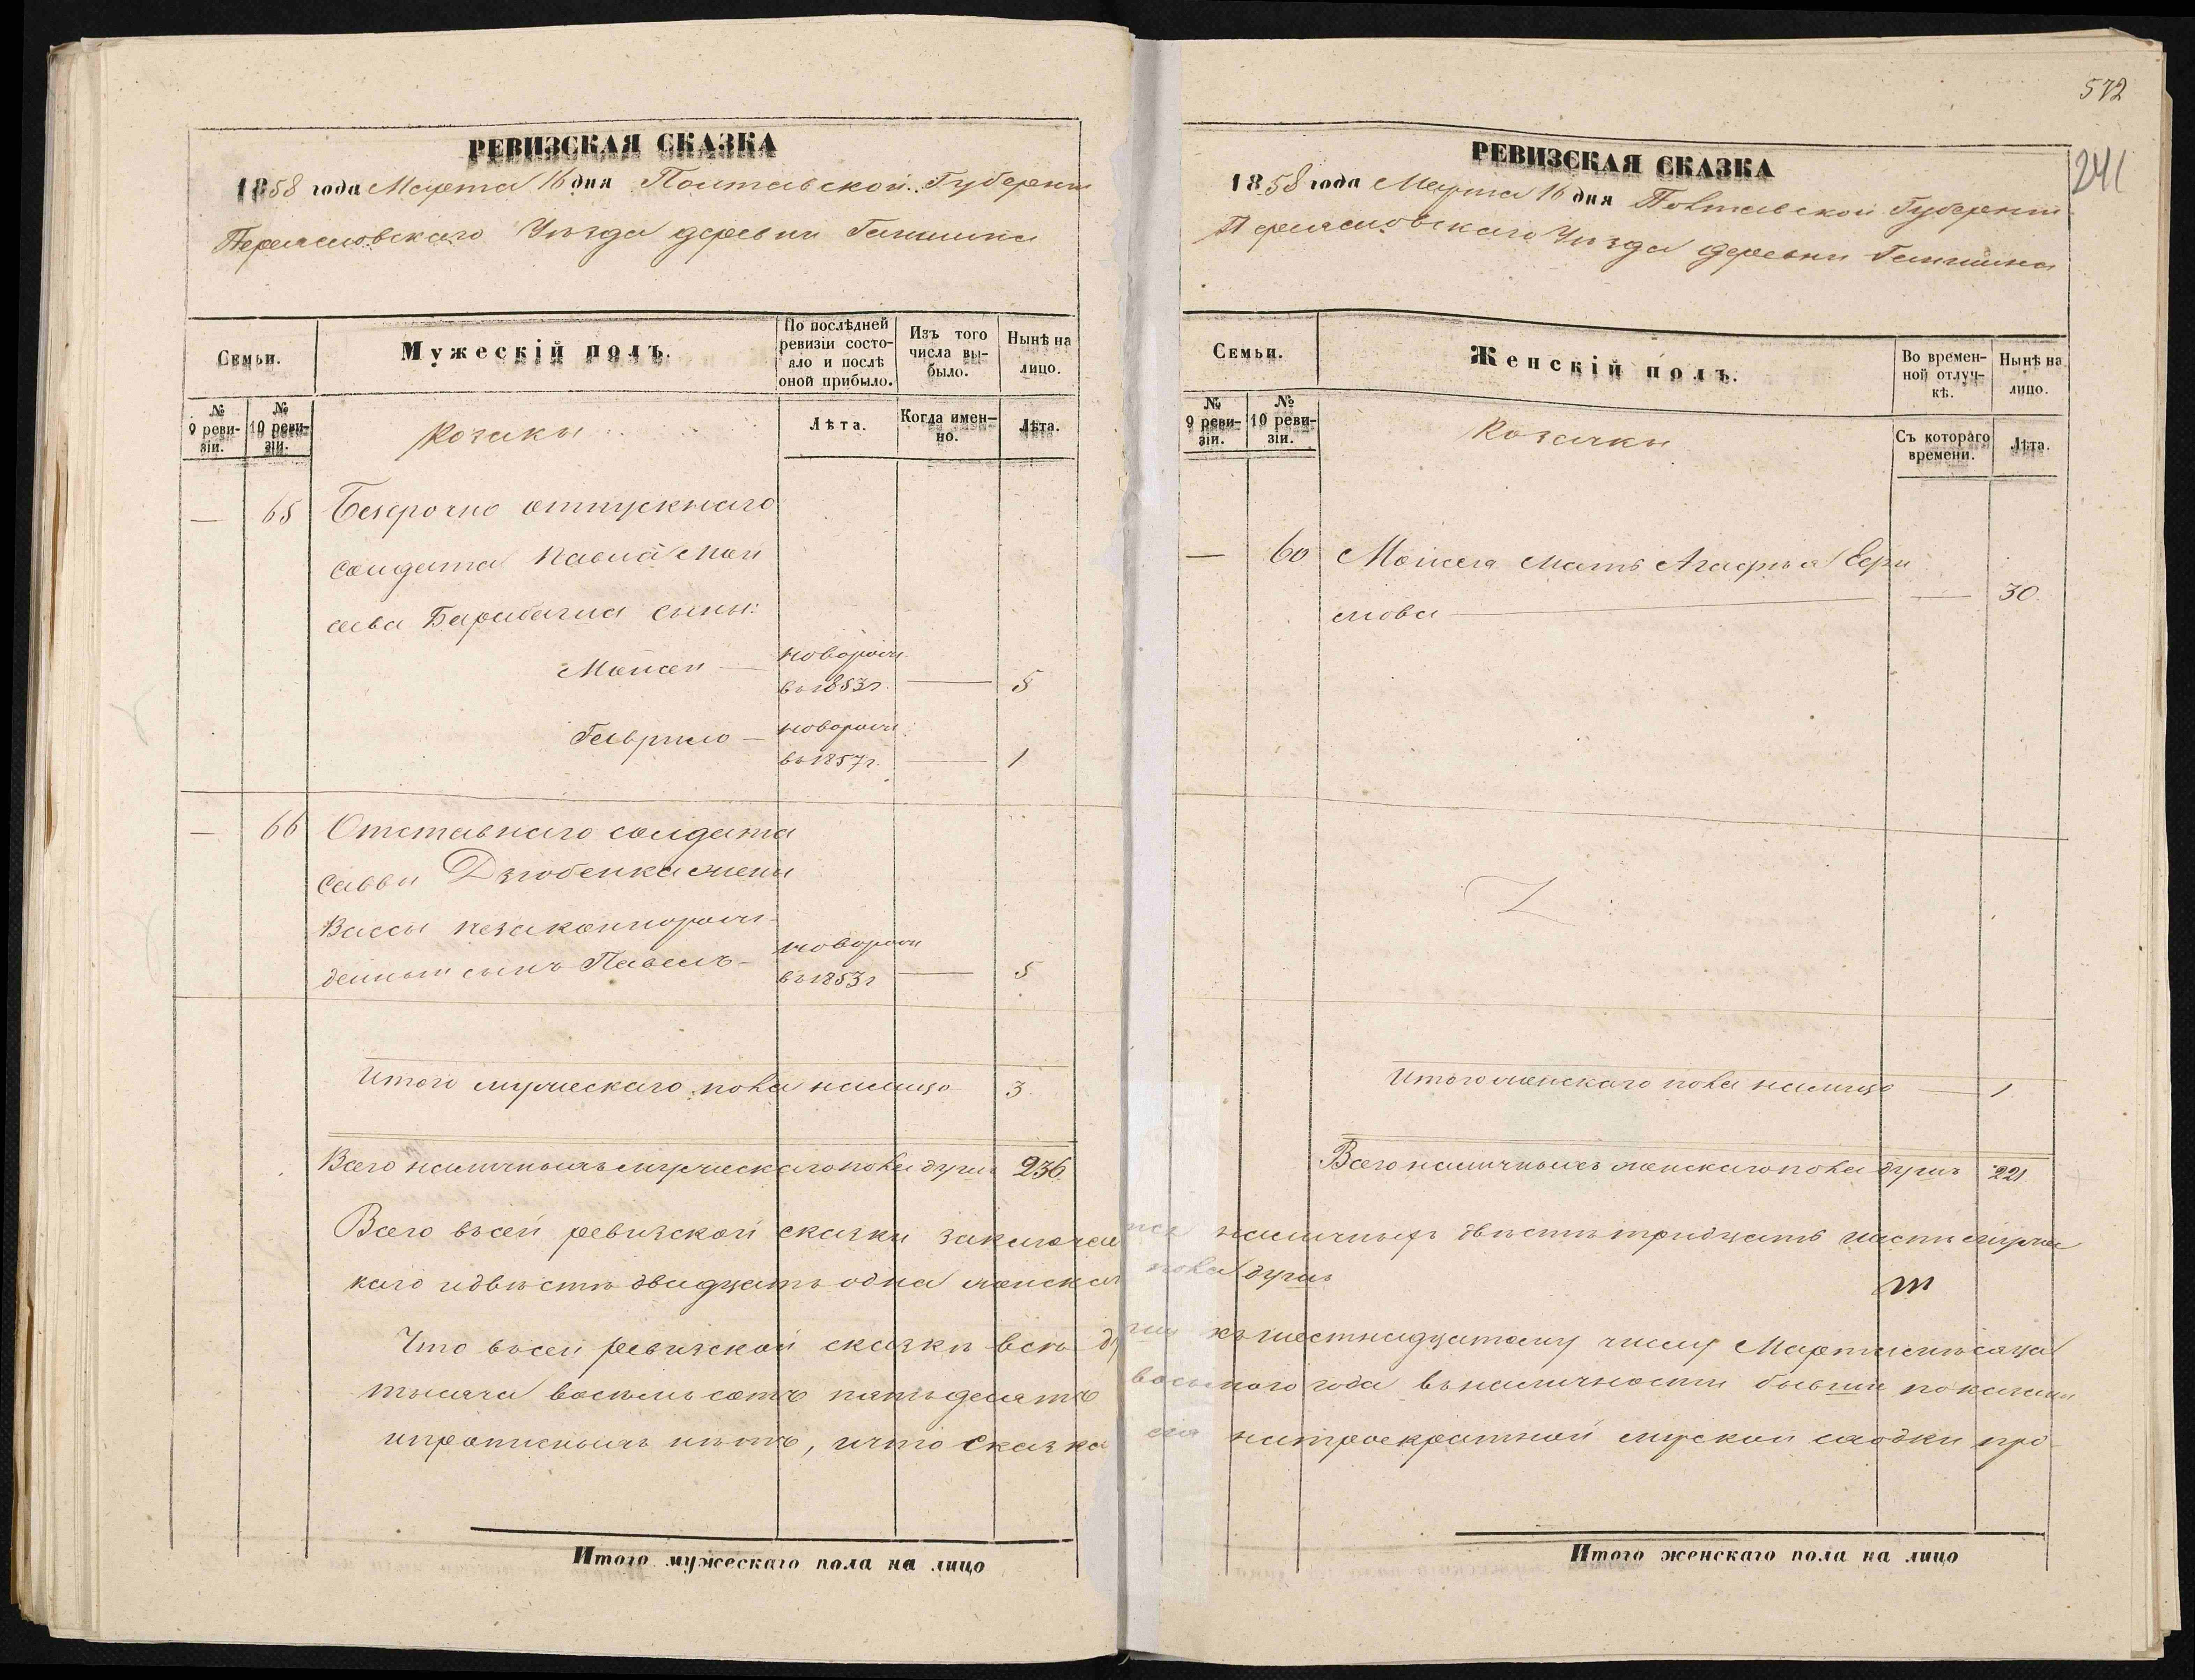 РЕВИЗСКАЯ СКАЗКА
1858 года Марта 16 дня Полтавской Губернии
Переясловскаго Уезда деревни Гаишина
Семьи.
Мужескій полъ.
По послѣдней ревизіи состояло и послѣ оной прибыло.
Изъ того числа выбыло.
Нынѣ на лицо.
№ 9 ревизіи.
№ 10 ревизіи.
Козаки
Лѣта.
Когда именно.
Лѣта.
— 65 Безсрочно отпускнаго
солдата Павла Мои
сеева Барабаша сыны:
Моисей — новорожд
въ 1853 г. — 5
Гаврило — новорожд
въ 1857 г. — 1
— 66 Отставнаго солдата
Саввы Дзюбенка жены
Вассы незаконнорож-
денный сынъ Павелъ — новорожд
въ 1853 г — 5
Итого мужескаго пола налицо 3
Всего наличныхъ мужескаго пола душъ 236
Всего въ сей ревизской сказки заключае
каго и двѣсти двадцать одна женскаго
Что въ сей ревизской сказкѣ всѣ ду
тысяча восемь сотъ пятьдесятъ
и прописныхъ нѣтъ, и что сказка
Итого мужескаго пола на лицо
572
241
РЕВИЗСКАЯ СКАЗКА
1858 года Марта 16 дня Полтавской Губернии
Переясловскаго Уезда деревни Гаишина
Семьи.
Женскій полъ.
Во временной отлучкѣ.
Нынѣ на лицо.
№ 9 ревизіи.
№ 10 ревизіи.
Козачки
Съ котораго времени.
Лѣта.
— 60 Моисея мать Агафья Ефи
мова — — 30
Итого женскаго пола налицо — 1
Всего наличныхъ женскаго пола душъ 221
тся наличныхъ двѣсти тридцать шесть мужес
пола душъ
ши къ шестнадцатому числу Марта мѣсяца
восьмого года въ наличности бывши показаны
сія на троекратной мірской сходки про-
Итого женскаго пола на лицо